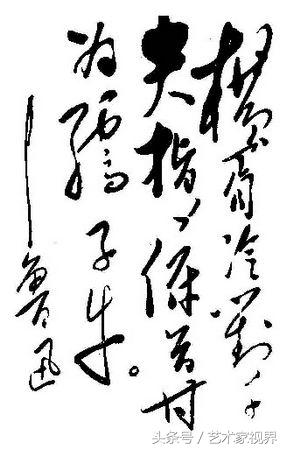 横眉冷對千
夫指、俯首甘
为孺子牛。
—鲁迅
头条号 / 艺术家视界